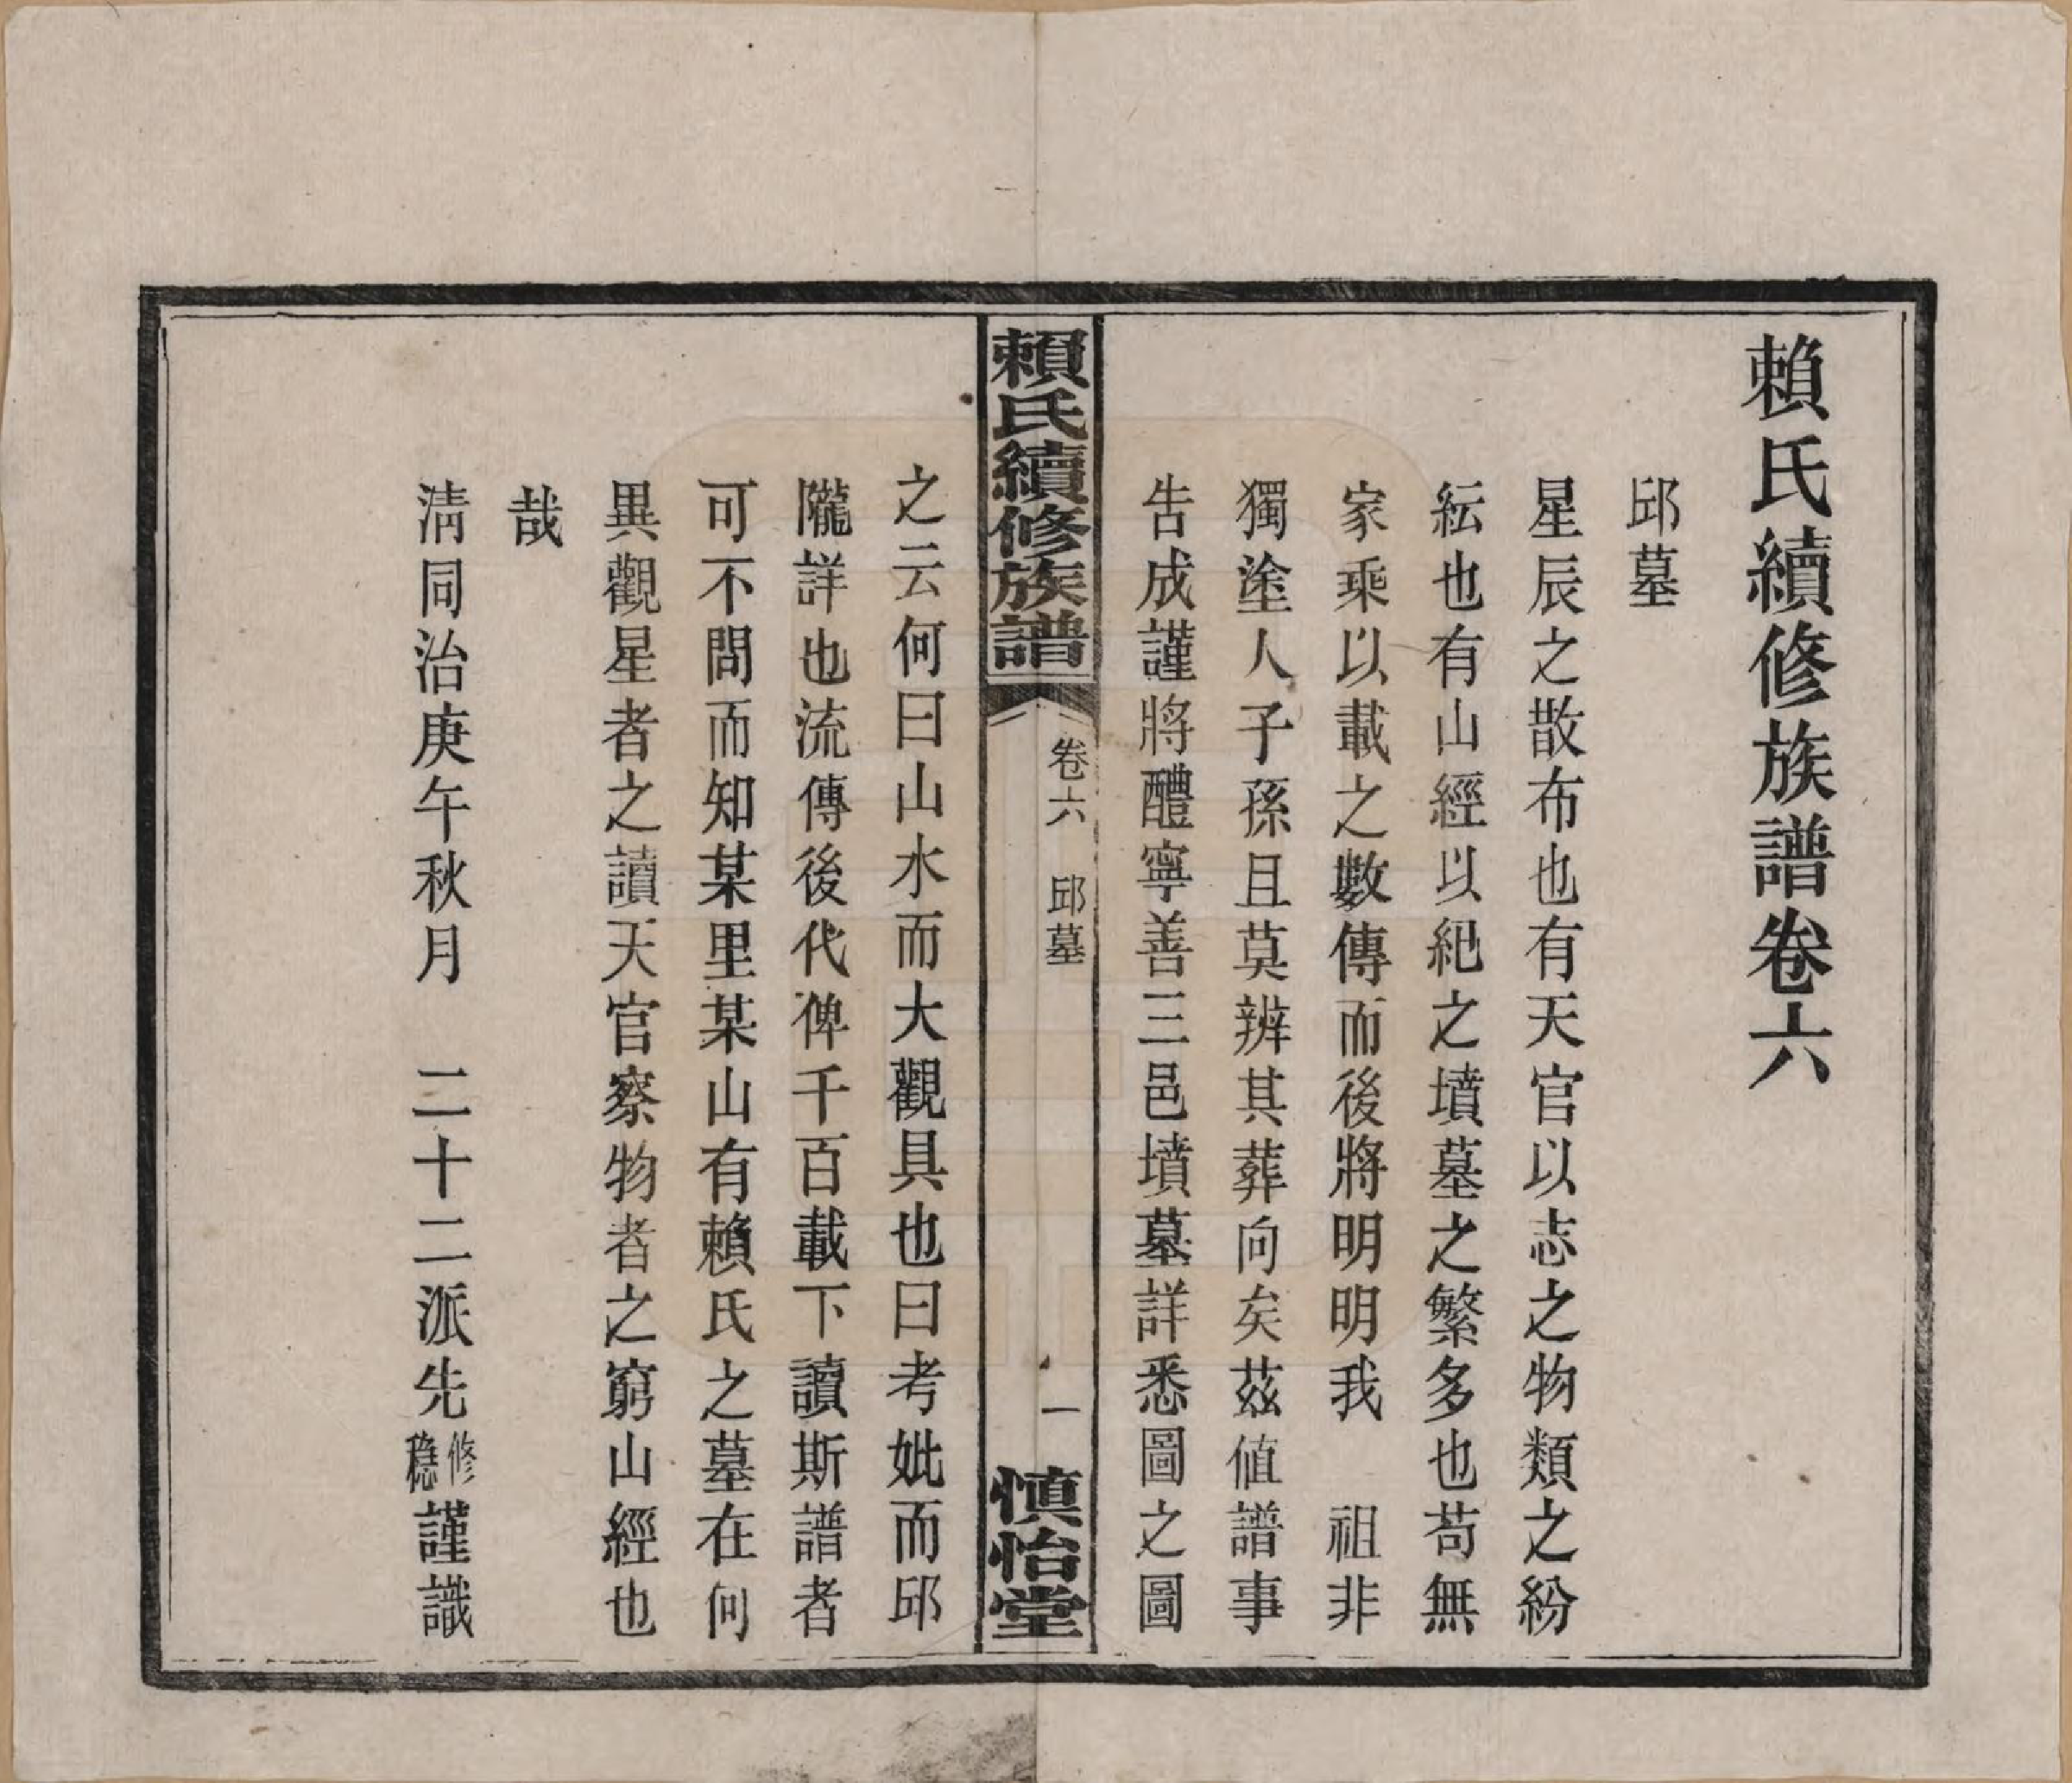 賴氏續修族譜卷六
邱墓
星辰之散布也有天官以志之物類之紛
紜也有山經以紀之墳墓之繁多也苟無
家乘以載之數傳而後將明明我　祖非
獨塗人子孫且莫辨其葬向矣茲値譜事
告成謹將醴寧善三邑墳墓詳悉圖之圖
賴氏續修族譜
卷六　邱墓
一
慎怡堂
之云何曰山水而大觀具也曰考妣而邱
隴詳也流傳後代俾千百載下讀斯譜者
可不問而知某里某山有賴氏之墓在何
異觀星者之讀天官察物者之窮山經也
哉
淸同治庚午秋月　二十二派先修穩謹識